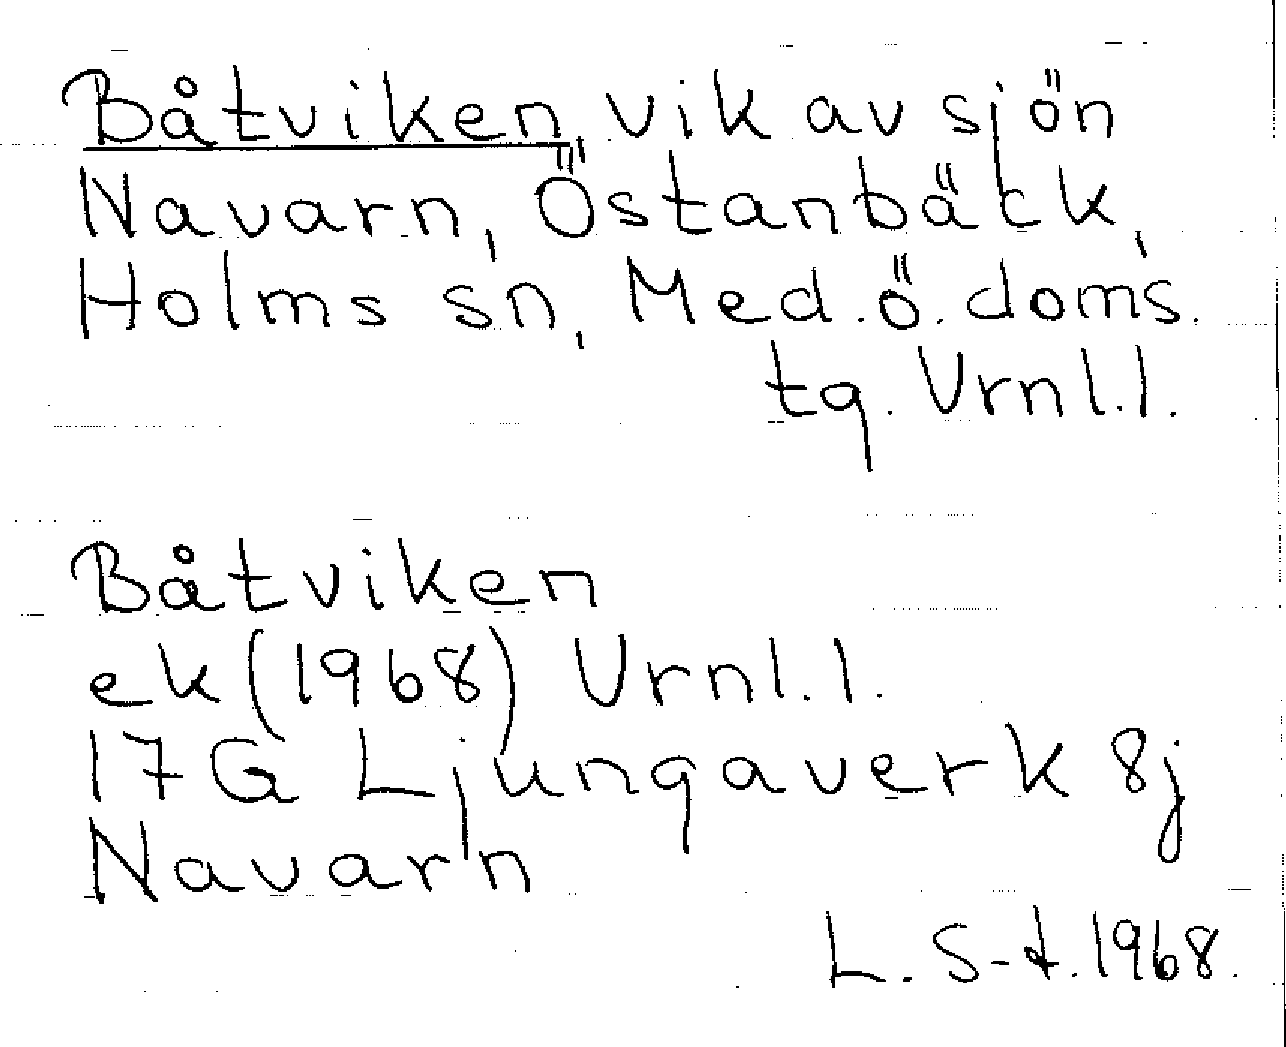 Båtviken, vik av sjön
Navarn, Östanbäck,
Holms sn, Med.ö.doms.
tg. Vrnl.l.
Båtviken
ek (1968) Vrnl.l.
17G Ljungaverk 8j
Navarn
L. S-d. 1968.